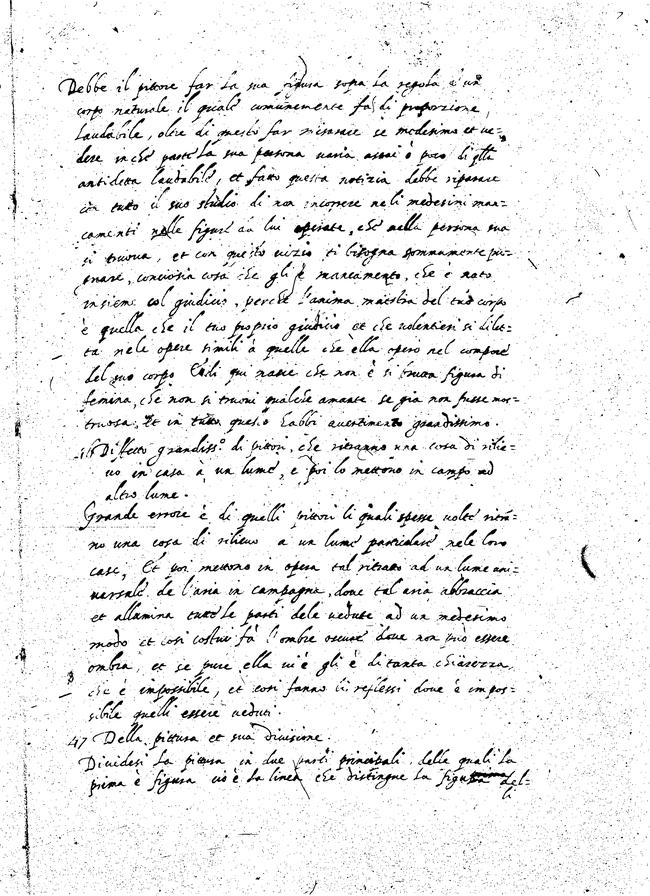 Debbe il pittore far la sua figura sopra la regola d'un
corpo naturale il quale comunemente fa di proporzione
laudabile, oltre di questo far misurare se medesimo et ve=
dere in che parte la sua persona varia assai ò poco di qlla
antidetta laudabile, et fatto questa notizia debbe riparare
con tutto il suo studio di non incorrere neli medesimi man=
camenti nelle figure da lui operate, che nella persona sua
si truova, et con questo vizio ti bisogna sommamente pu=
gnare, conciosia cosa che gli è mancamento, che è nato
insieme col giudicio, perche l'anima maestra del tuo corpo
è quella che il tuo proprio giudicio et che volentieri si dilet=
ta nele opere simili à quelle che ella opero nel comporre
del suo corpo Et di qui nasce che non è si trista figura di
femina, che non si truovi qualche amante se gia non fusse mos=
truosa, Et in tutto questo habbi avertimento grandissimo.
Difetto grandiss.o di pittori, che ritranno una cosa di rilie=
vo in casa à un lume, e poi lo mettono in campo ad
altro lume.
Grande errore è di quelli pittori li quali spesse volte ritra=
no una cosa di rilievo a un lume particulare nele loro
case, Et poi mettono in opera tal ritratto ad un lume uni=
versale de l'aria in campagna, dove tal aria abbraccia
et allumina tutte le parti dele vedute ad un medesimo
modo et cosi costui fa l'ombre oscure dove non può essere
ombra, et se pure ella vi è gli è di tanta chiarezza,
che è impossibile, et cosi fanno li reflessi dove è impos=
sibile quelli essere veduti.
47 Della pittura et sua divisione.
Dividesi la pittura in due parti principali, delle quali la
prima è figura cio è la linea che distingue la figura del=
li